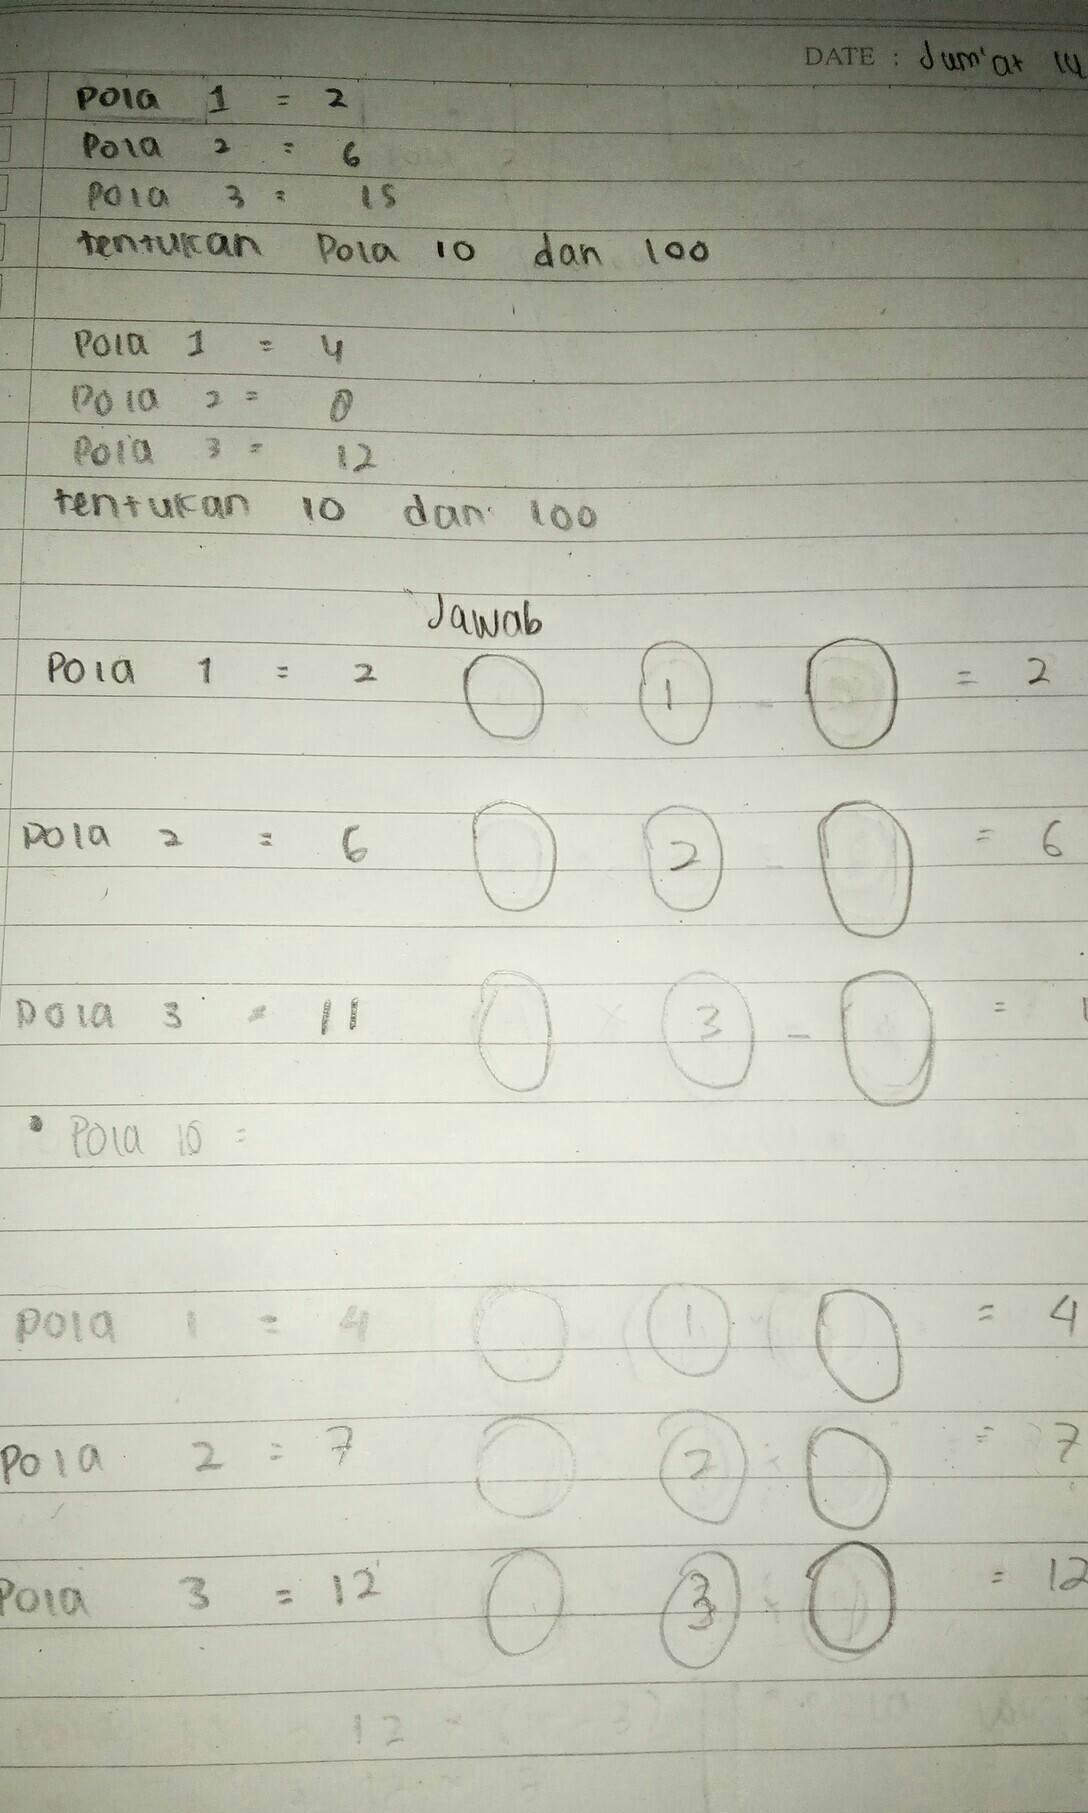 DATE : Jum'at 14
Pola 1 = 2
Pola 2 = 6
Pola 3 = 15
tentukan Pola 10 dan 100
Pola 1 = 4
Pola 2 = 8
Pola 3 = 12
tentukan 10 dan 100
Jawab
Pola 1 = 2 1 - = 2
Pola 2 = 6 2 - = 6
Pola 3 = 11 × 3 - = 1
• Pola 10 =
Pola 1 = 4 1 = 4
Pola 2 = 7 2 = 7
Pola 3 = 12 3 = 12